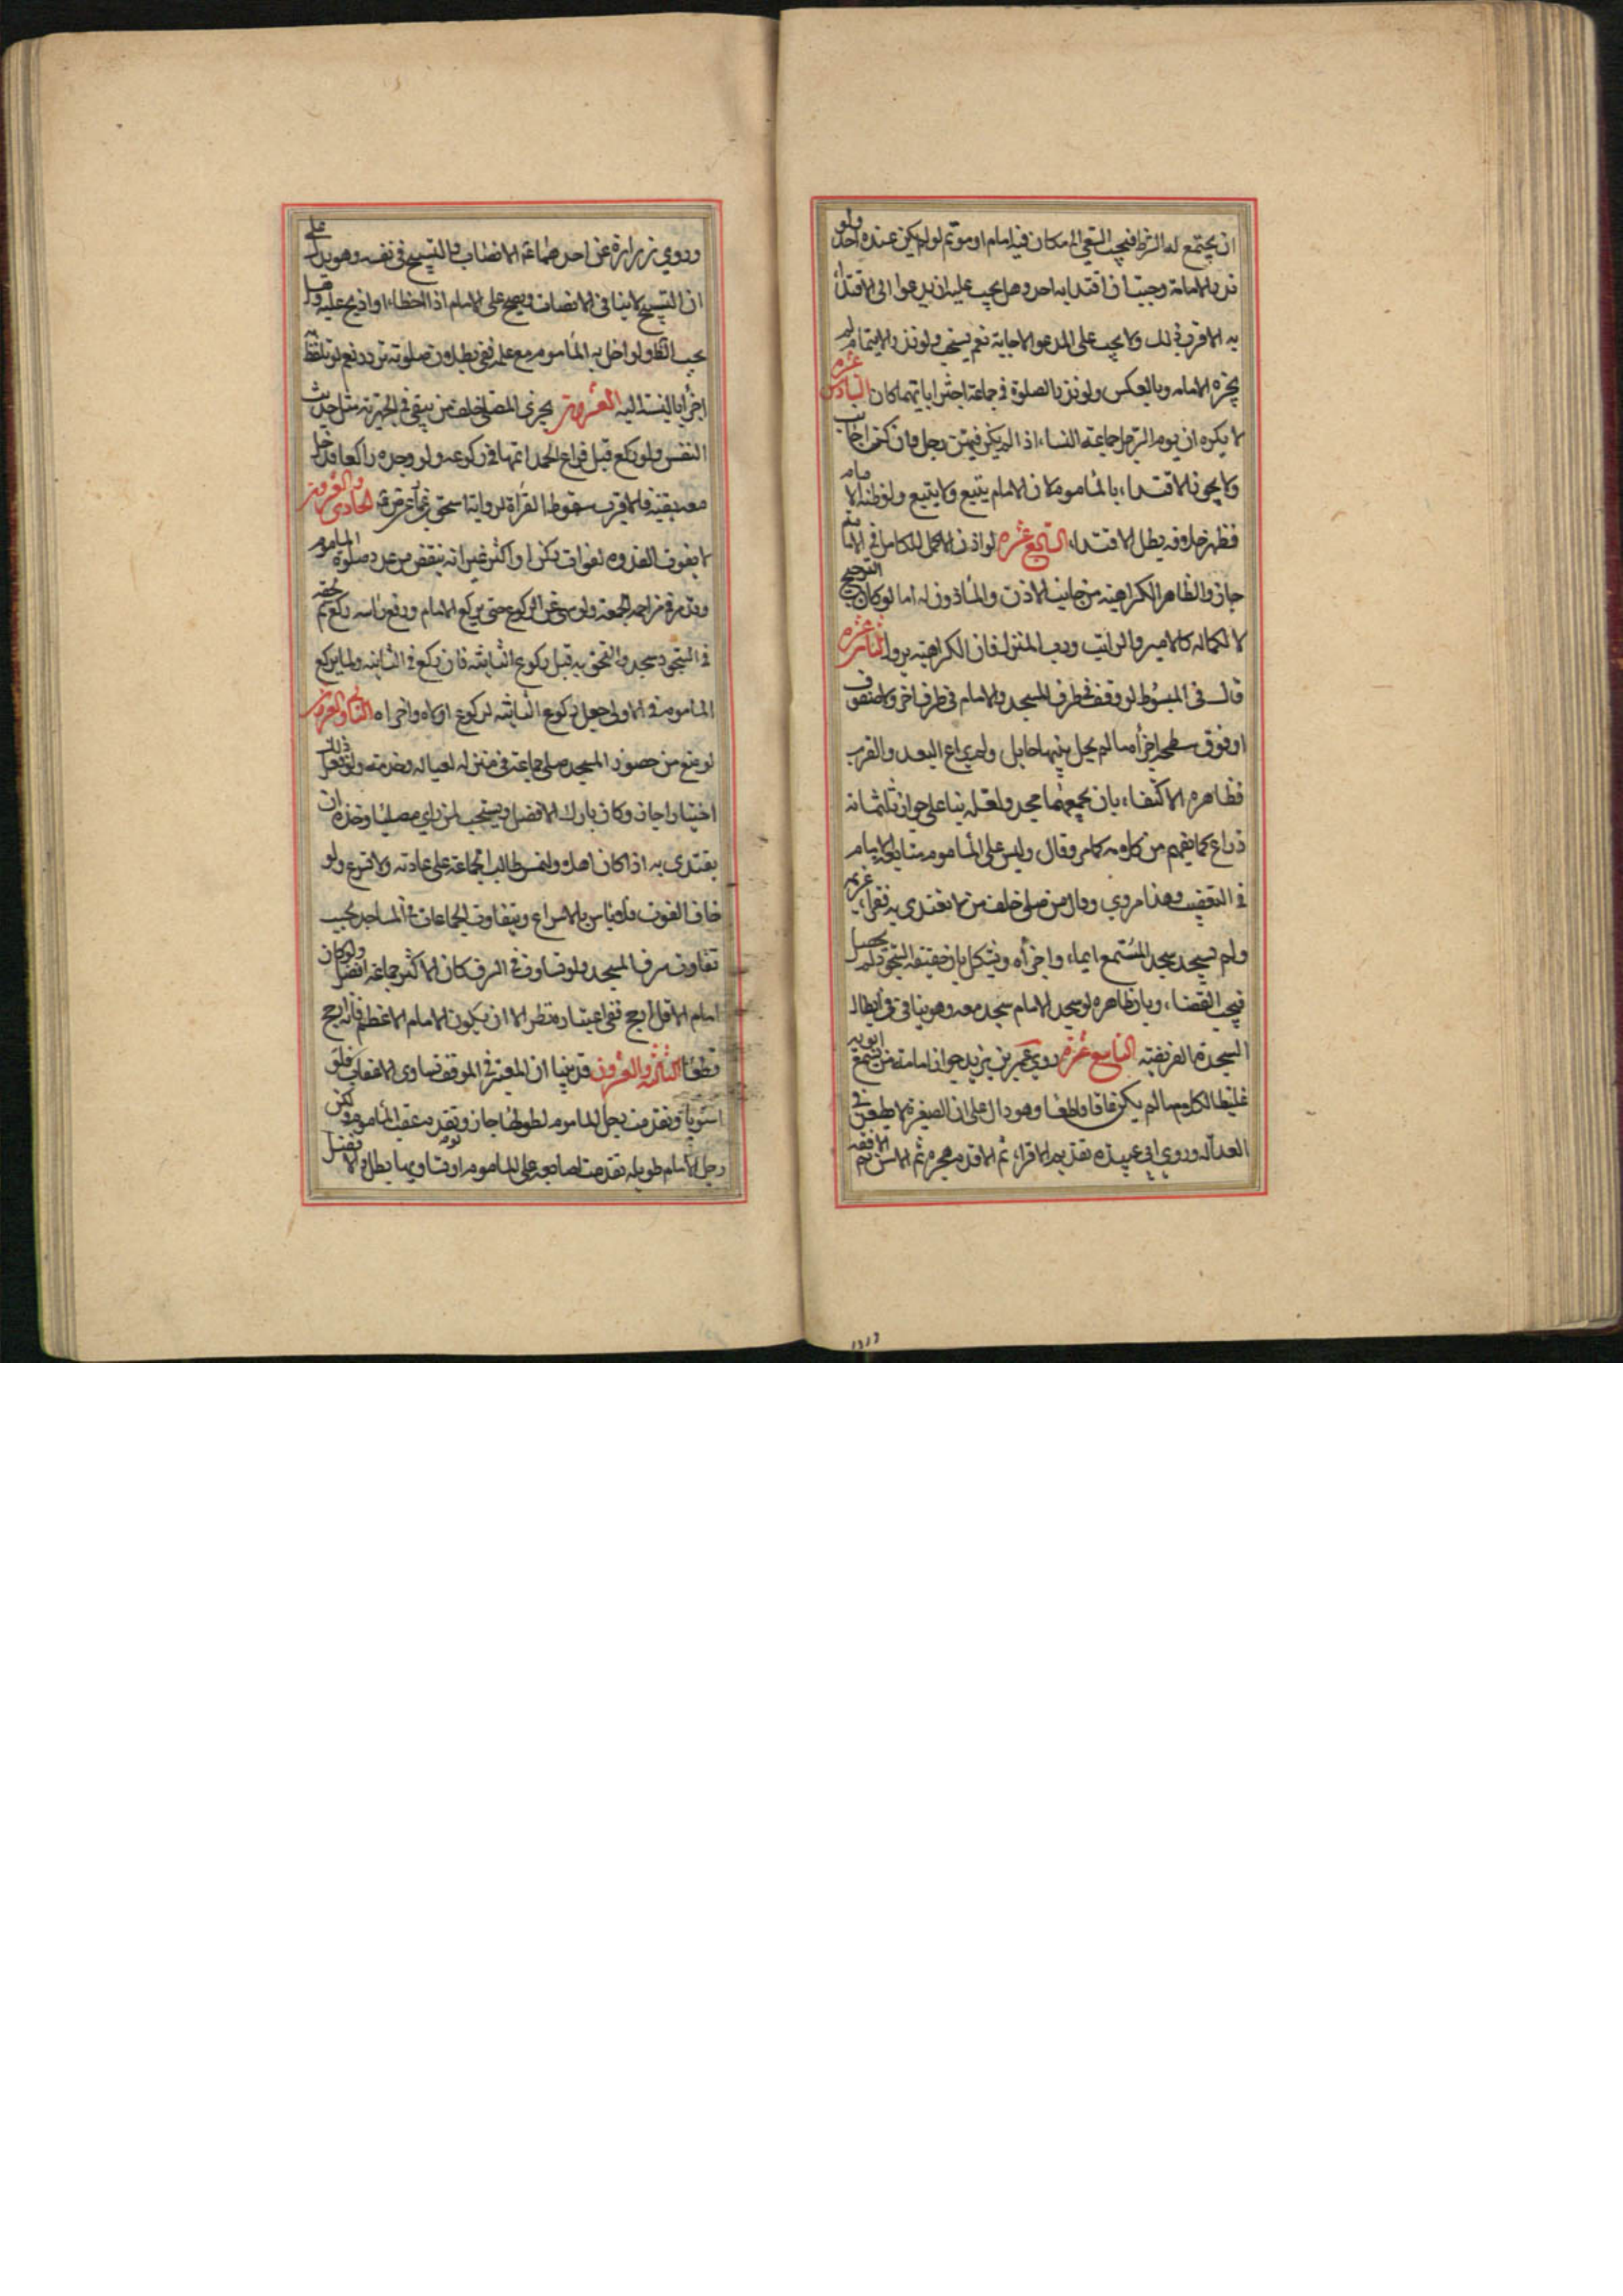 ان يجتمع له الشرط فيجب السعي الى مكان فيه امام او مؤتم لو لم يكن عنده احد ولو
نذر الامامة وجبت ان اقتدا به احد وهل يجب عليه ان يدعوا الى الاقتدا
به الاقرب ذلك ولا يجب على المدعو الاجابة نعم يستحب ولو نذر الايتمام لم
يجزه الامامه وبالعكس ولو نذر الصلوة في جماعة اجتزا بايهما كان السادس عشره
لا يكره ان يوم الرجل جماعة النساء اذا لم يكن فيهن رجل وان كن اجانب
ولا يجوز الاقتداء بالمأموم لان الامام يتبع ولا يتبع ولو ظنه الامام
فظهر خلافه بطل الاقتداء السابع عشره لو اذن الاكمل للكامل في الامامة
جاز والظاهر الكراهية من جانب الاذن والمأذون له اما لو كان الترجيح
لا لكماله كالامير والراتب ورب المنزل فان الكراهية تزول الثامن عشره
قال في المبسوط لو وقف في طرف المسجد والامام في طرف اخر ولا صفوف
او فوق سطحه اجزأ ما لم يحل بينهما حايل ولم يراع البعد والقرب
فظاهره الاكتفاء بان يجمعهما مسجد ولعله بنا على جواز ثلثمائه
ذراع كما يفهم من كلامه كما مر وقال وليس على المأموم متابعة الامام
في التعقيب وهذا مروي وقال من صلى خلف من لا يقتدى به فقراء عزيمة
ولم يسجد سجد المستمع ايماء واجزأه ويشكل بان حقيقة السجود لم يحصل
فيجب القضاء وبان ظاهره لو سجد الامام سجد معه وهو ينافي في ابطال
السجدة الفريضة التاسع عشره روي عمر بن يزيد جواز امامة من يسمع ابويه
غليظ الكلام ما لم يكن عاقا قاطعا وهو دال على ان الصغيرة لا يطعن في
العدالة وروى ابي عبيدة تقديم الاقراء ثم الاقدم هجره ثم الاسن ثم الافقه
وروي زرارة عن احدهما عم الانصات والتسبيح في نفسه وهو يدل على
ان التسبيح لا ينافي الانصات ويفتح على الامام اذا اخطاء او ارتج عليه وهل
يجب الظ ولو اخل به المأموم مع علمه ففي بطلان صلوته تردد نعم لو تلفظ به
اجزأ بالنسبة اليه العشرون يجزي المصلي خلف من يتقي في الجهرية مثل حديث
النفس ولو ركع قبل فراغ الحمد اتمها في ركوعه ولو وجده راكعا فدخل
معه بتقية فالاقرب سقوط القرأة لرواية اسحق بن عمار عن ق الحادي والعشرون
لا يفوت القدوه بفوات ركن او اكثر غير انه ينقص من عدد صلوة المأموم
وقد مر في مزاحم الجمعة ولو سهى عن الركوع حتى يركع الامام ورفع رأسه ركع ثم لحقه
في السجود سجد والتحق به قبل ركوع الثانية فان ركع في الثانية ولما يركع
المأموم في الاولى جعل ركوع الثانية لركوع اولاه واجزاه الثاني والعشرون
لو منع من حضور المسجد صلى جماعة في منزله لعياله وخدمه ولو فعل ذلك
اختيارا جاز وكان تارك الافضل ويستحب لمن راى مصليا وحده ان
يقتدى به اذا كان اهلا وليمش طالب الجماعة على عادته ولا يسرع ولو
خاف الفوت فلا باس بالاسراع ويتفاوت الجماعات في المساجد بحسب
تفاوت شرف المسجد ولو تساوت في الشرف كان الاكثر جماعة افضل ولو كان
امام الاقل ارجح ففي اعتباره نظر الا ان يكون الامام الاعظم فانه ارجح
قطعا الثالثة والعشرون قد بينا ان المعتبر في الموقف تساوى الاعقاب فلو
استويا وتقدمت رجل المأموم لطولها جاز وتقدم عقب المأموم ولكن
رجل الامام طويله تقدمت اصابعه على المأموم او تساويها بطل والافضل